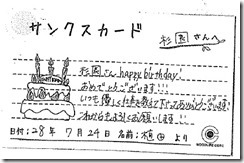 サンクスカード
杉園さんへ
杉園さん happy birthday!
おめでとうございます!!!
いつも優しく仕事を教えて下さってありがとうございます!
これからもよろしくお願いします!!
日付:28年 7月24日 名前:植田 より